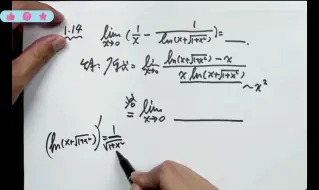 1.14 lim x→0 (1/x - 1/ln(x+√1+x²)) = ___.
解: 原式 = lim x→0 ln(x+√1+x²) - x / x ln(x+√1+x²) ~x²
0/0 = lim x→0 ___
(ln(x+√1+x²))' = 1/√1+x²